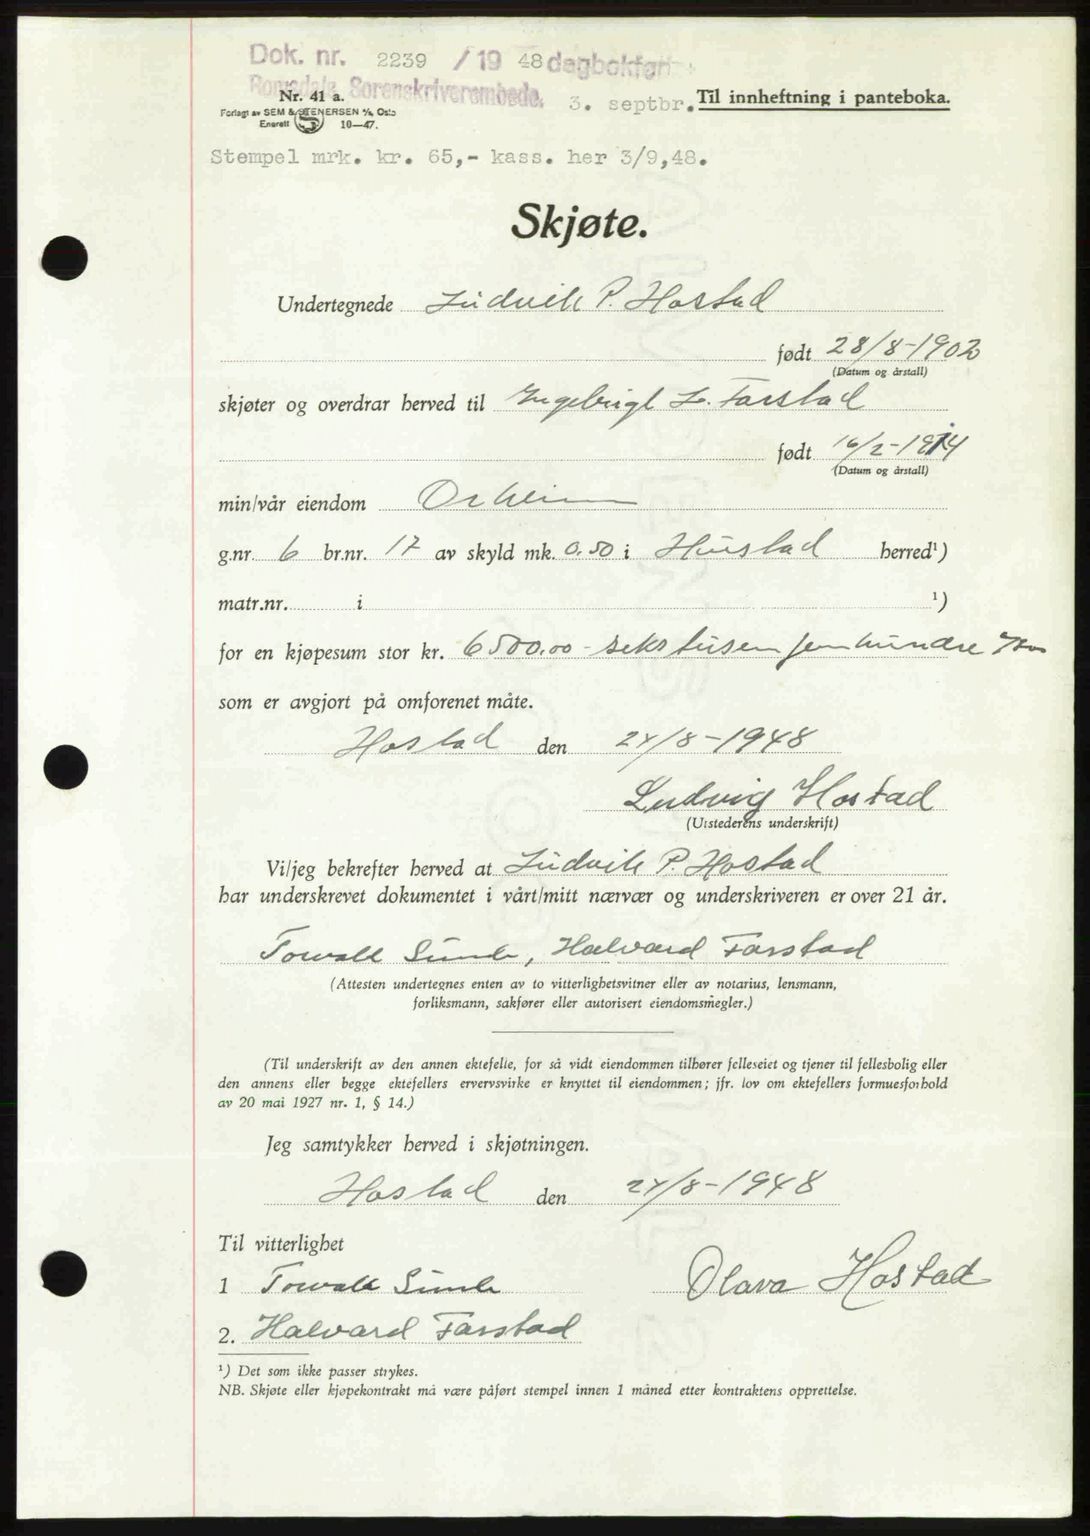 Dok. nr. 2239 / 19 48 dagbokført
Romsdals Sorenskriverembede. 3. septbr.
Nr. 41 a.
Til innheftning i panteboka.
Forlagt av SEM & STENERSEN A/S, Oslo
Enerett 10—47.
Stempel mrk. kr. 65,- kass. her 3/9,48.
Skjøte.
Undertegnede Ludvik P. Hostad
født 28/8-1902
(Datum og årstall)
skjøter og overdrar herved til Ingebrigt L. Farstad
født 16/2-1914
(Datum og årstall)
min/vår eiendom Orheim
g.nr. 6 br.nr. 17 av skyld mk. 0.50 i Hustad herred¹)
matr.nr. i ¹)
for en kjøpesum stor kr. 6500.00 - sekstusen femhundre
som er avgjort på omforenet måte.
Hostad den 24/8-1948
Ludvig Hostad
(Utstederens underskrift)
Vi/jeg bekrefter herved at Ludvik P. Hostad
har underskrevet dokumentet i vårt/mitt nærvær og underskriveren er over 21 år.
Torvald Sunde, Halvard Farstad
(Attesten undertegnes enten av to vitterlighetsvitner eller av notarius, lensmann,
forliksmann, sakfører eller autorisert eiendomsmegler.)
(Til underskrift av den annen ektefelle, for så vidt eiendommen tilhører felleseiet og tjener til fellesbolig eller
den annens eller begge ektefellers ervervsvirke er knyttet til eiendommen; jfr. lov om ektefellers formuesforhold
av 20 mai 1927 nr. 1, § 14.)
Jeg samtykker herved i skjøtningen.
Hostad den 24/8-1948
Til vitterlighet
1 Torvald Sunde Olava Hostad
2. Halvard Farstad
¹) Det som ikke passer strykes.
NB. Skjøte eller kjøpekontrakt må være påført stempel innen 1 måned etter kontraktens opprettelse.